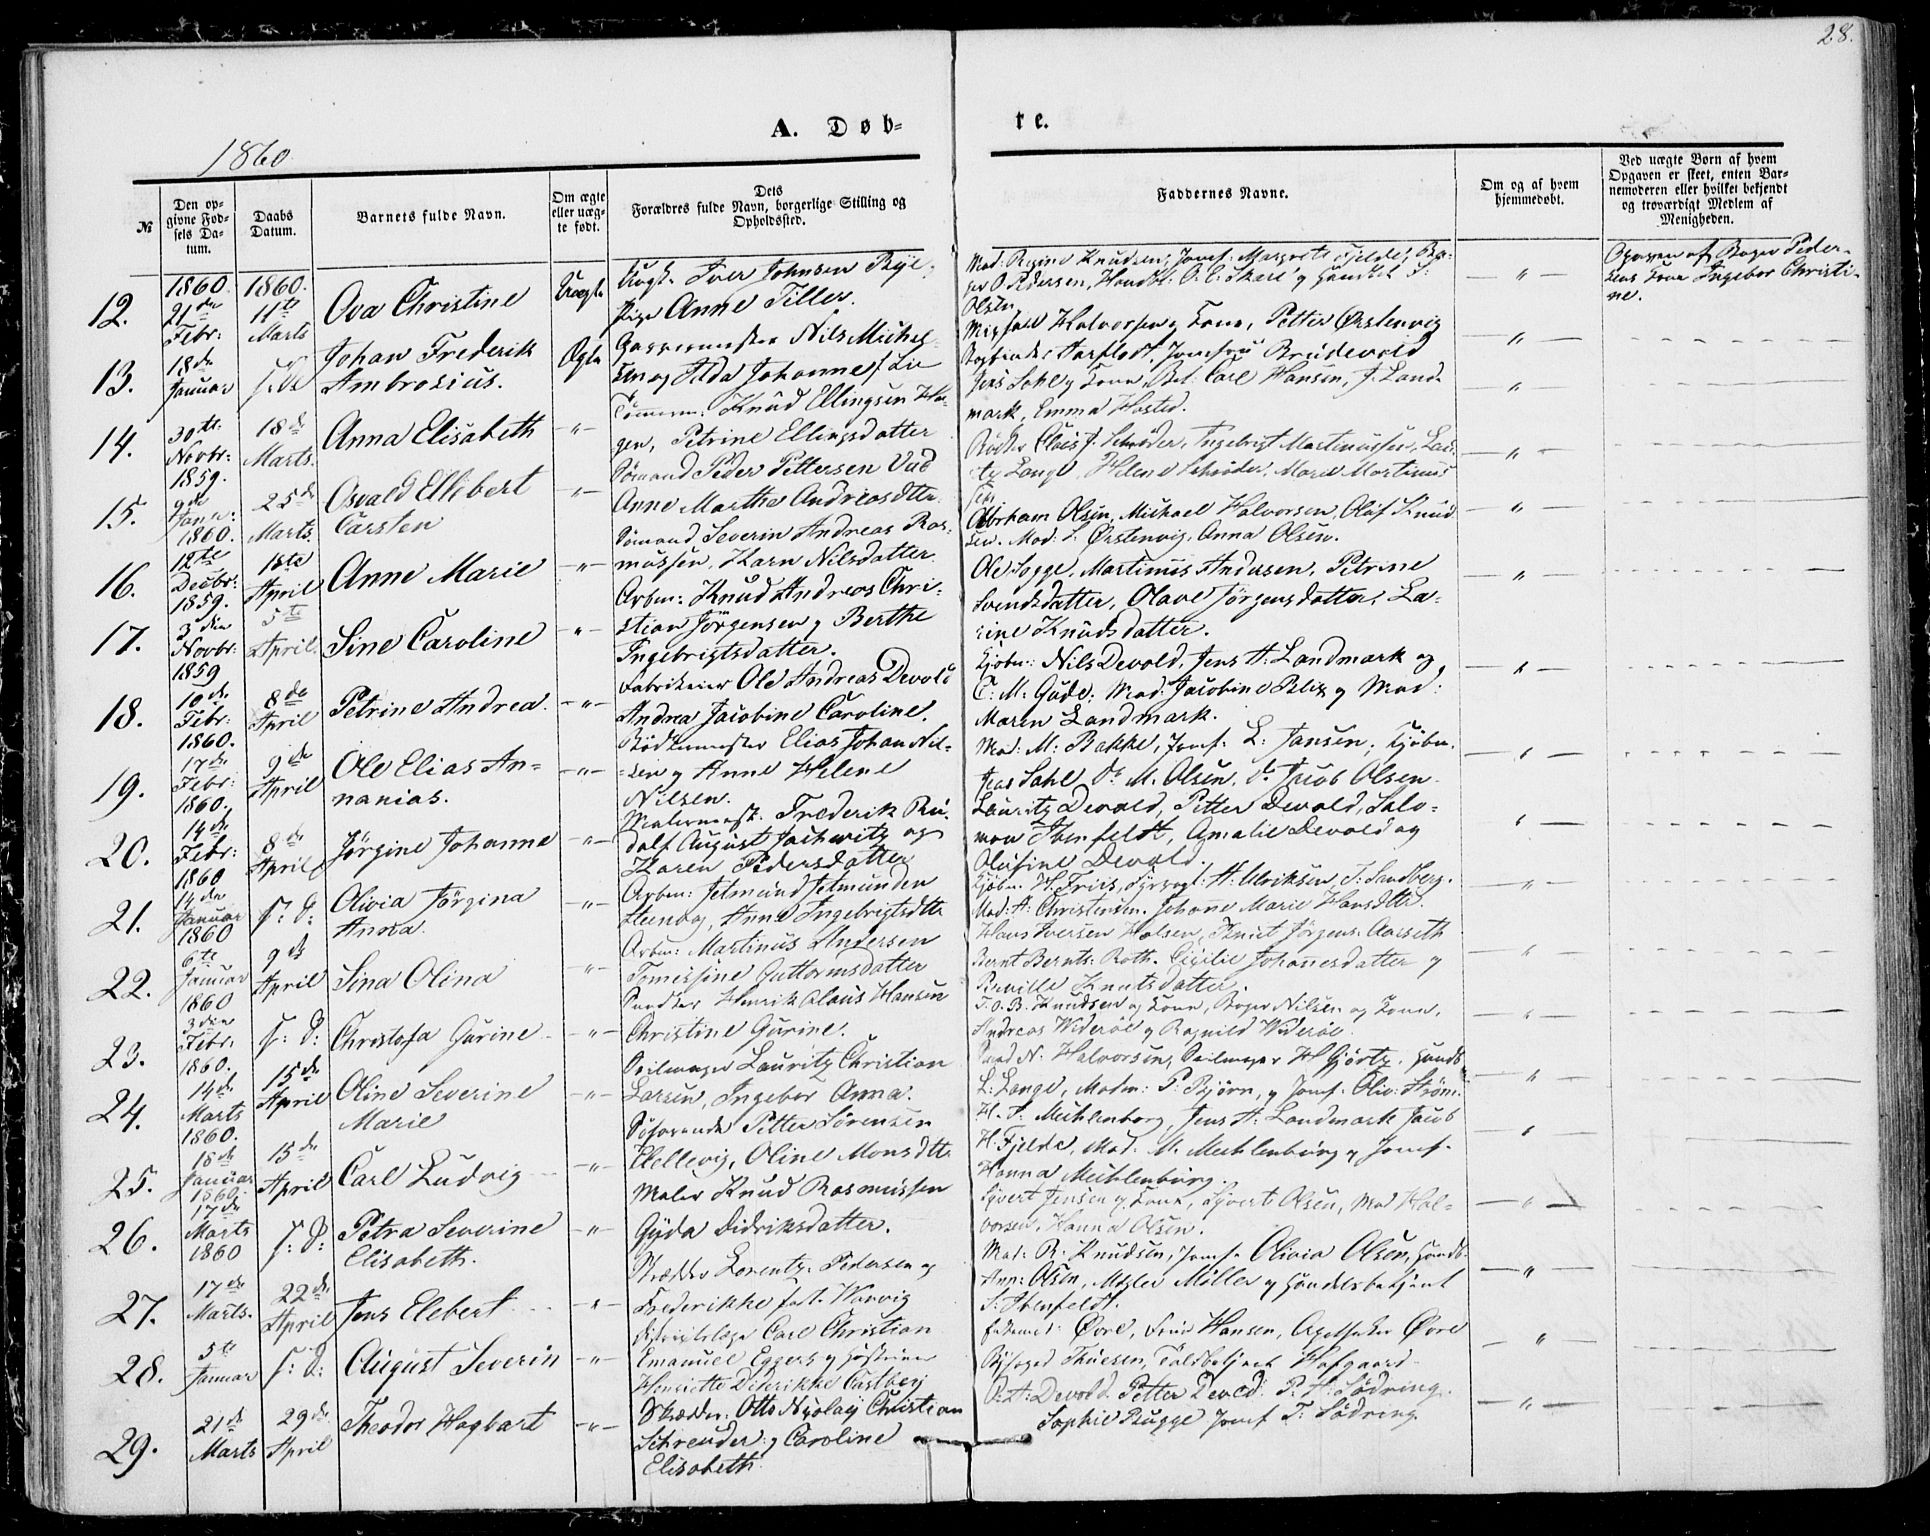 28.
A. Døb-
re.
1860
№
Den op-
givne Fød-
sels Da-
tum.
Daabs
Datum.
Barnets fulde Navn.
Om ægte
eller uæg-
te født.
Dets
Forældres fulde Navn, borgerlige Stilling og
Opholdssted.
Faddernes Navne.
Om og af hvem
hjemmedøbt.
Ved uægte Børn af hvem
Opgaven er skeet, enten Bar-
nemoderen eller hvilket bekjendt
og troværdigt Medlem af
Menigheden.
12.
1860.
21de
Febr:
1860.
11te
Marts
Ova Christine
Uægte
Iver Johnsen
Pige Anne Tiller.
Mad: Regine Knudsen, Jomf: Margrete Fjelde, Ba-
ger O. Pedersen, Handbt: O. C. Skare og
Olsen
Opgaven af Bager Peder-
sens Kone Ingebor Christi-
ne.
13.
18de
Januar
Johan Frederik
Ambrosius.
Ægte
Nils Michel-
sen og Ilda Johanne f. Lie
Halvorsen og Kone, Petter Ørstenvig
Bogbinder Aarflodt, Jomfru Brudevold
14.
30te
Novbr:
1859.
18de
Marts.
Anna Elisabeth
Tømmerm: Knud Ellingsen Ha-
gen, Petrine Ellingsdatter
Jens Dahl og Kone, Bet: Carl Hansen, J. Land-
mark, Emma Hosted.
15.
9de
Janr:
1860.
25de
Marts.
Osvald Ellebert
Carsten
Sømand Peder Pettersen Vad
Anne Marthe Andreasdtter
Claus J. Schrøder, Ingebrigt Martinussen, Lau-
tz Lange, Helene Schrøder, Maren Martinus
sen
16.
12te
Decbr:
1859.
1ste
April
Anne Marie
Sømand Severin Andreas Ras-
mussen, Karn Nilsdatter
Abrham Olsen, Michael Halvorsen, Oluf Knud
sen. Mad: L. Ørstenvig, Anna Olsen.
17.
3die
Novbr:
1859
5te
April.
Sine Caroline
Arbm: Knud Andreas Chri-
stian Jørgensen og Berthe
Ingebrigtsdatter.
Ole Sogge, Martinus Andersen, Petrine
Svendsdatter, Olave Jørgensdatter, La-
rine Knudsdatter.
18.
10de
Febr:
1860.
8de
April
Petrine Andrea.
Fabrikeier Ole Andreas Devold
Andrea Jacobine Caroline.
Kjøbm: Nils Devold, Jens A. Landmark og
C. M. Gade. Mad: Jacobine Blix og Mad:
Maren Landmark.
19.
17de
Febr:
1860.
9de
April
Ole Elias An-
nanias.
Bødkermester Elias Johan Nil-
sen og Anne Helene
Nilsen.
Mad: M: Bakke, Jomf: L: Jansen, Kjøbm.
Jens Dahl, do M. Olsen, do Jacob Olsen.
20.
14de
Febr:
1860
8de
April
Jørgine Johanne
Malermest. Frederik Ru-
dolf August Jachwitz og
Karen Pedersdatter
Lauritz Devold, Petter Devold, Salo-
mon Ibenfeldt, Amalie Devold og
Olufine Devold.
21.
14de
Januar
1860
s: d:
Olivia Jørgina
Anna.
Arbm: Jetmund Jetmunden
Anne Ingebrigtsdttr
Kjøbm. H. Friis, Fyrvogt: A: Ulriksen, T. Sandberg.
Mad: A: Christensen. Johanne Marie Hansdtter.
22.
6te
Januar
1860
9de
April
Sina Olina
Arbm: Martinus Andersen
Guttormsdatter
Hans Iversen Holsen, Knut Jørgens: Aarseth
Bernt Bernts: Roth. Cicilie Johannesdatter og
Knutsdatter.
23.
3die
Febr.
1860.
s: d:
Christofa Gurine
Snedker Henrik Claus Hansen
Christine Gurine.
T. O. B. Knudsen og Kone, Bager Nilsen og Kone,
Andreas Widerøe og Ragnild Widerøe.
24.
14de
Marts
1860.
15de
April
Oline Severine
Marie
Seilmager Lauritz Christian
Larsen, Ingebor Anna.
N: Halvorsen, Seilmager H. Hjørtz.
L: Lange, Madm: P. Bjørn, og Jomf. Oliv: Strøm.
25.
18de
Januar
1860.
15de
April
Carl Ludvig
Søfarende Petter Sørensen
Hellevig, Oline Monsdtr
H. T. Mechlenborg, Jens A: Landmark Jacob
H. Fjelde, Mad. M. Mechlenburg og Jomf.
Hanna Mechlenburg.
26.
17de
Marts
1860
s: d:
Petra Severine
Elisabeth.
Maler Knud Rasmussen
Gyda Didriksdatter.
Syvert Jensen og Kone, Syvert Olsen, Mad Hal-
vorsen, Hanna Olsen.
27.
17de
Marts.
22de
April
Jens Elebert
Skrædder Lorentz Pedersen og
Frederikke født Warvig
Mad: R: Knudsen, Jomfr Olivia Olsen,
Olsen, Mægler Møller og Handelsbetjent
S: Ibenfeldt.
28.
5te
Januar
s: d:
August Severin
Distriktslæge Carl Christian
Emanuel Eggers og Hustrue
Henriette Didrikke Carlberg
Øvre, Frue Hansen, Apotheker Øvre
Byfoged Thuesen, Toldbetjent Hofgaard
29.
21de
Marts
29de
April
Theodor Hagbart
Skrædder: Otto Nicolaij Christian
Schreuder: og Caroline
Elisabeth.
O: A: Devold. Petter Devold. P. A: Sødring.
Sophie Bugge Jomf T: Sødring